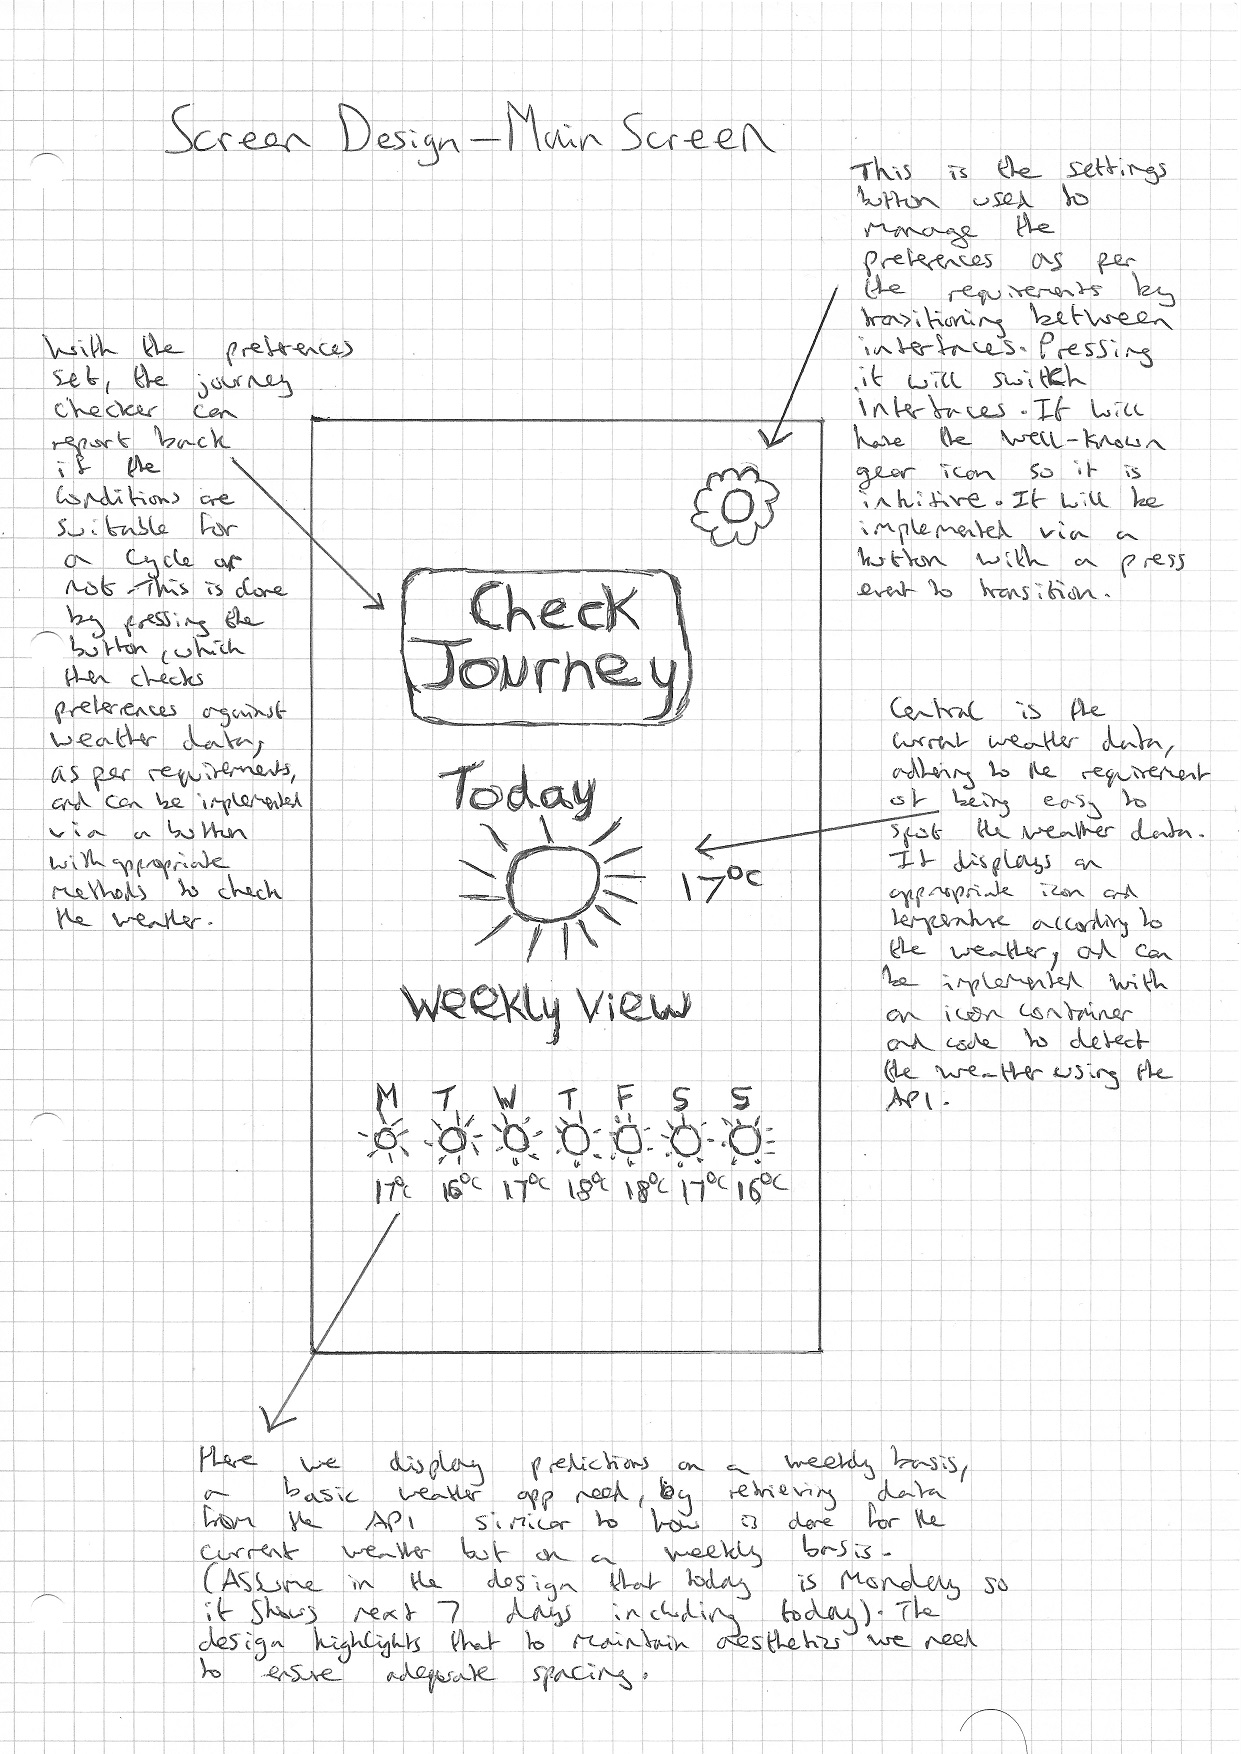 Screen Design – Main Screen
This is the settings
button used to
manage the
preferences as per
the requirements by
transitioning between
interfaces. Pressing
it will switch
interfaces. It will
have the well-known
gear icon so it is
intuitive. It will be
implemented via a
button with a press
event to transition.
With the preferences
set, the journey
checker can
report back
if the
conditions are
suitable for
a cycle or
not. This is done
by pressing the
button, which
then checks
preferences against
weather data,
as per requirements,
and can be implemented
via a button
with appropriate
methods to check
the weather.
Check
Journey
Today
17°C
Central is the
current weather data,
adhering to the requirement
of being easy to
spot the weather data.
It displays an
appropriate icon and
temperature according to
the weather, and can
be implemented with
an icon container
and code to detect
the weather using the
API.
Weekly View
M T W T F S S
17°C 16°C 17°C 18°C 18°C 17°C 16°C
Here we display predictions on a weekly basis,
a basic weather app need, by retrieving data
from the API similar to how is done for the
current weather but on a weekly basis.
(Assume in the design that today is Monday so
it shows next 7 days including today). The
design highlights that to maintain aesthetics we need
to ensure adequate spacing.